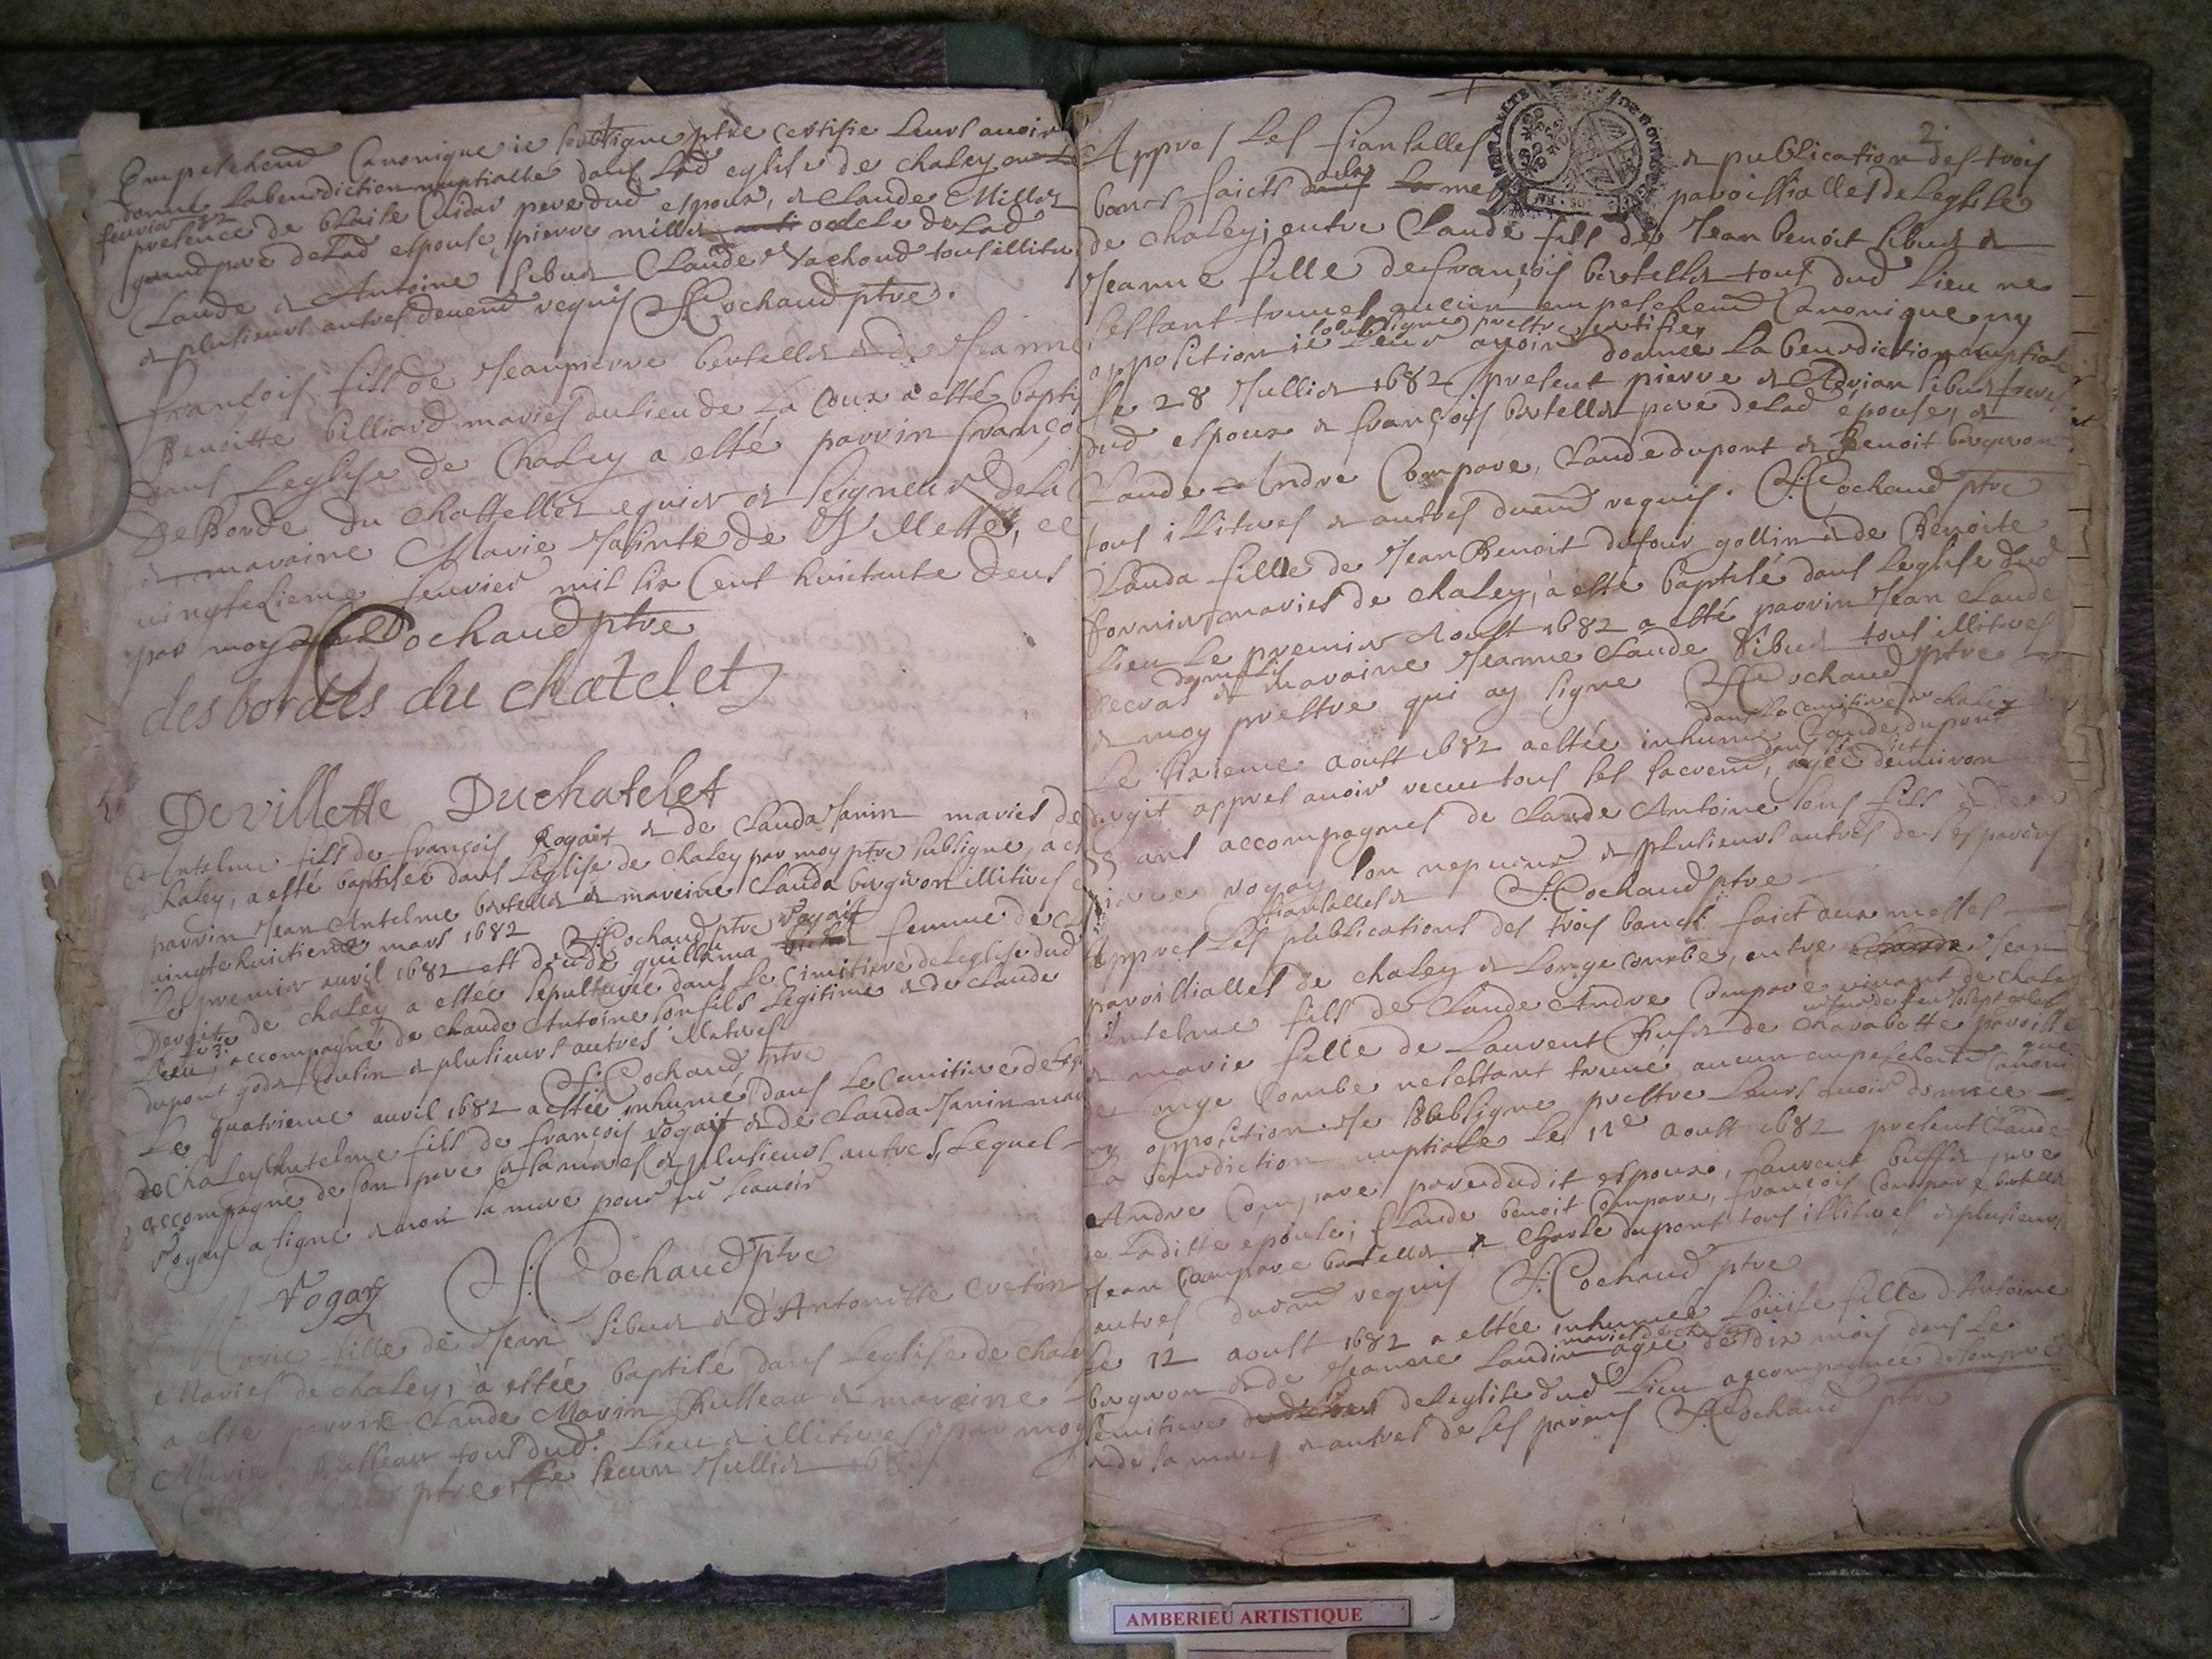 Empeschemd Canonique ie soubsigne ptre certifie leurs avoir
donné la benediction nuptialle dans lad eglise de chaley
feuvrier 82
presence de blaise Cuidar pere dud espoux, et Claude Millet
grand pere de lad espouse, pierre millet oncle de lad
Claude et Antoine sibuet Claude Vachoud tous illitu
et plusieurs autres deuemd requis F Cochaud ptre.
françois fils de Jean pierre bertellet et de Jeanne
Benoitte billiard maries au lieu de la Coux a esté bapti
dans leglise de Chaley a esté parrin franço
De Borde du chastellet equier et seigneur de la
et maraine Marie Jasinte de Villette, ce
uingtesieme feuvier mil six cent huictante deux
par moy Cochaud ptre
des bordes du chatelet
Devillette Duchatelet
Antelme fils de françois Rogait et de Clauda Janin maries de
Chaley, a esté baptisée dans leglise de chaley par moy ptre subsigne, a e
parrin Jean Antelme bertellet et mareine Clauda bergeron illitires
uingte huictieme mars 1682 F Cochaud ptre
Le premier auril 1682 est dcdde guillema Vogait femme de
de chaley a estee sepulturee dans le cimitiere de leglise dud
Lieu, accompagné de claude Antoine son fils legitime et de claude
dupont godet Cousin et plusieurs autres illitires
F. Cochaud ptre
Le quatrieme auril 1682 a estée inhumé dans le cemitiere de leg
de Chaley Antelme fils de françois Vogait et de Clauda Janin mar
accompagné de son pere et sa mere et plusieurs autres, Lequel
Vogay a signe et non sa mere pour ne scauoir
Vogay F. Cochaud ptre
Marie fille de Jean sibuet et d'Antoinette Cretin
Maries de chaley, a estée baptisé dans leglise de chaley
a esté parrin Claude Marin Rusleau et maraine
Marie Rusleau tous dud. Lieu et illitires par moy
ptre, le Jullier 168

2
Appres les fiansalles et publication des trois
bancs faicts aux mes paroissialles de leglise
de chaley, entre Claude fils de Jean benoit sibuet et
Jeanne fille de françois bertellet tous dud lieu ne
sestant trouué aucun empeschemd Canonique ny
opposition ie soubsigne prestre certifie
leur avoir donnee la benediction nuptiale
le 28 Jullier 1682 present pierre et Adrian sibuet freres
dud espoux et françois bertellet pere de lad epouse, et
Claude Andre Compare, Claude dupont et Benoit bergeron
tous illitires et autres duemd requis. F. Cochaud ptre
Clauda fille de Jean Benoit dufour gollin et de Benoite
fornier maries de chaley, a esté baptisé dans leglise dud
lieu le premier Aoust 1682 a esté parrin Jean Claude
decras et maraine Jeanne Claude sibuet tous illitires
et moy prestre qui ay signe F. Cochaud ptre
dans le cemitiere de chaley
Le sixieme aoust 1682 a estée inhumé Claude dupont
dugit appres auoir receu tous les sacremd, agée denuiron
ans accompagnes de Claude Antoine son fils et de
pierre vogay son nepueux et plusieurs autres de ses parens
F. Cochaud ptre
fiansalles et
Appres les publications des trois bancs faict aux messes
paroissialles de chaley et Longecombe, entre Jean
Antelme fils de Claude Andre Compare viuant de chaley
et marie fille de Laurent Bufet de Charabotte paroisse
de Longe Combe ne sestant trouué aucun empeschemd canoni que
ny opposition Je soubsigne prestre leurs auoir donnee
la benediction nuptiale le 11e aoust 1682 present Claude
Andre Compare, pere dudit espoux, Laurent buffet pere
de laditte epouse; Claude benoit Compare, françois Compare bertellet
Jean Compare bertellet et Charle dupont tous illitires et plusieurs
autres duemd requis F. Cochaud ptre
Le 12 aoust 1682 a estée inhumeé Loüise fille d'Antoine
bergeron et de Jeanne Landin agée de dix mois dans le
semitiere de leglise dud Lieu accompagnee de son pere
et de sa mere et autres de ses parens F. Cochaud ptre
AMBERIEU ARTISTIQUE